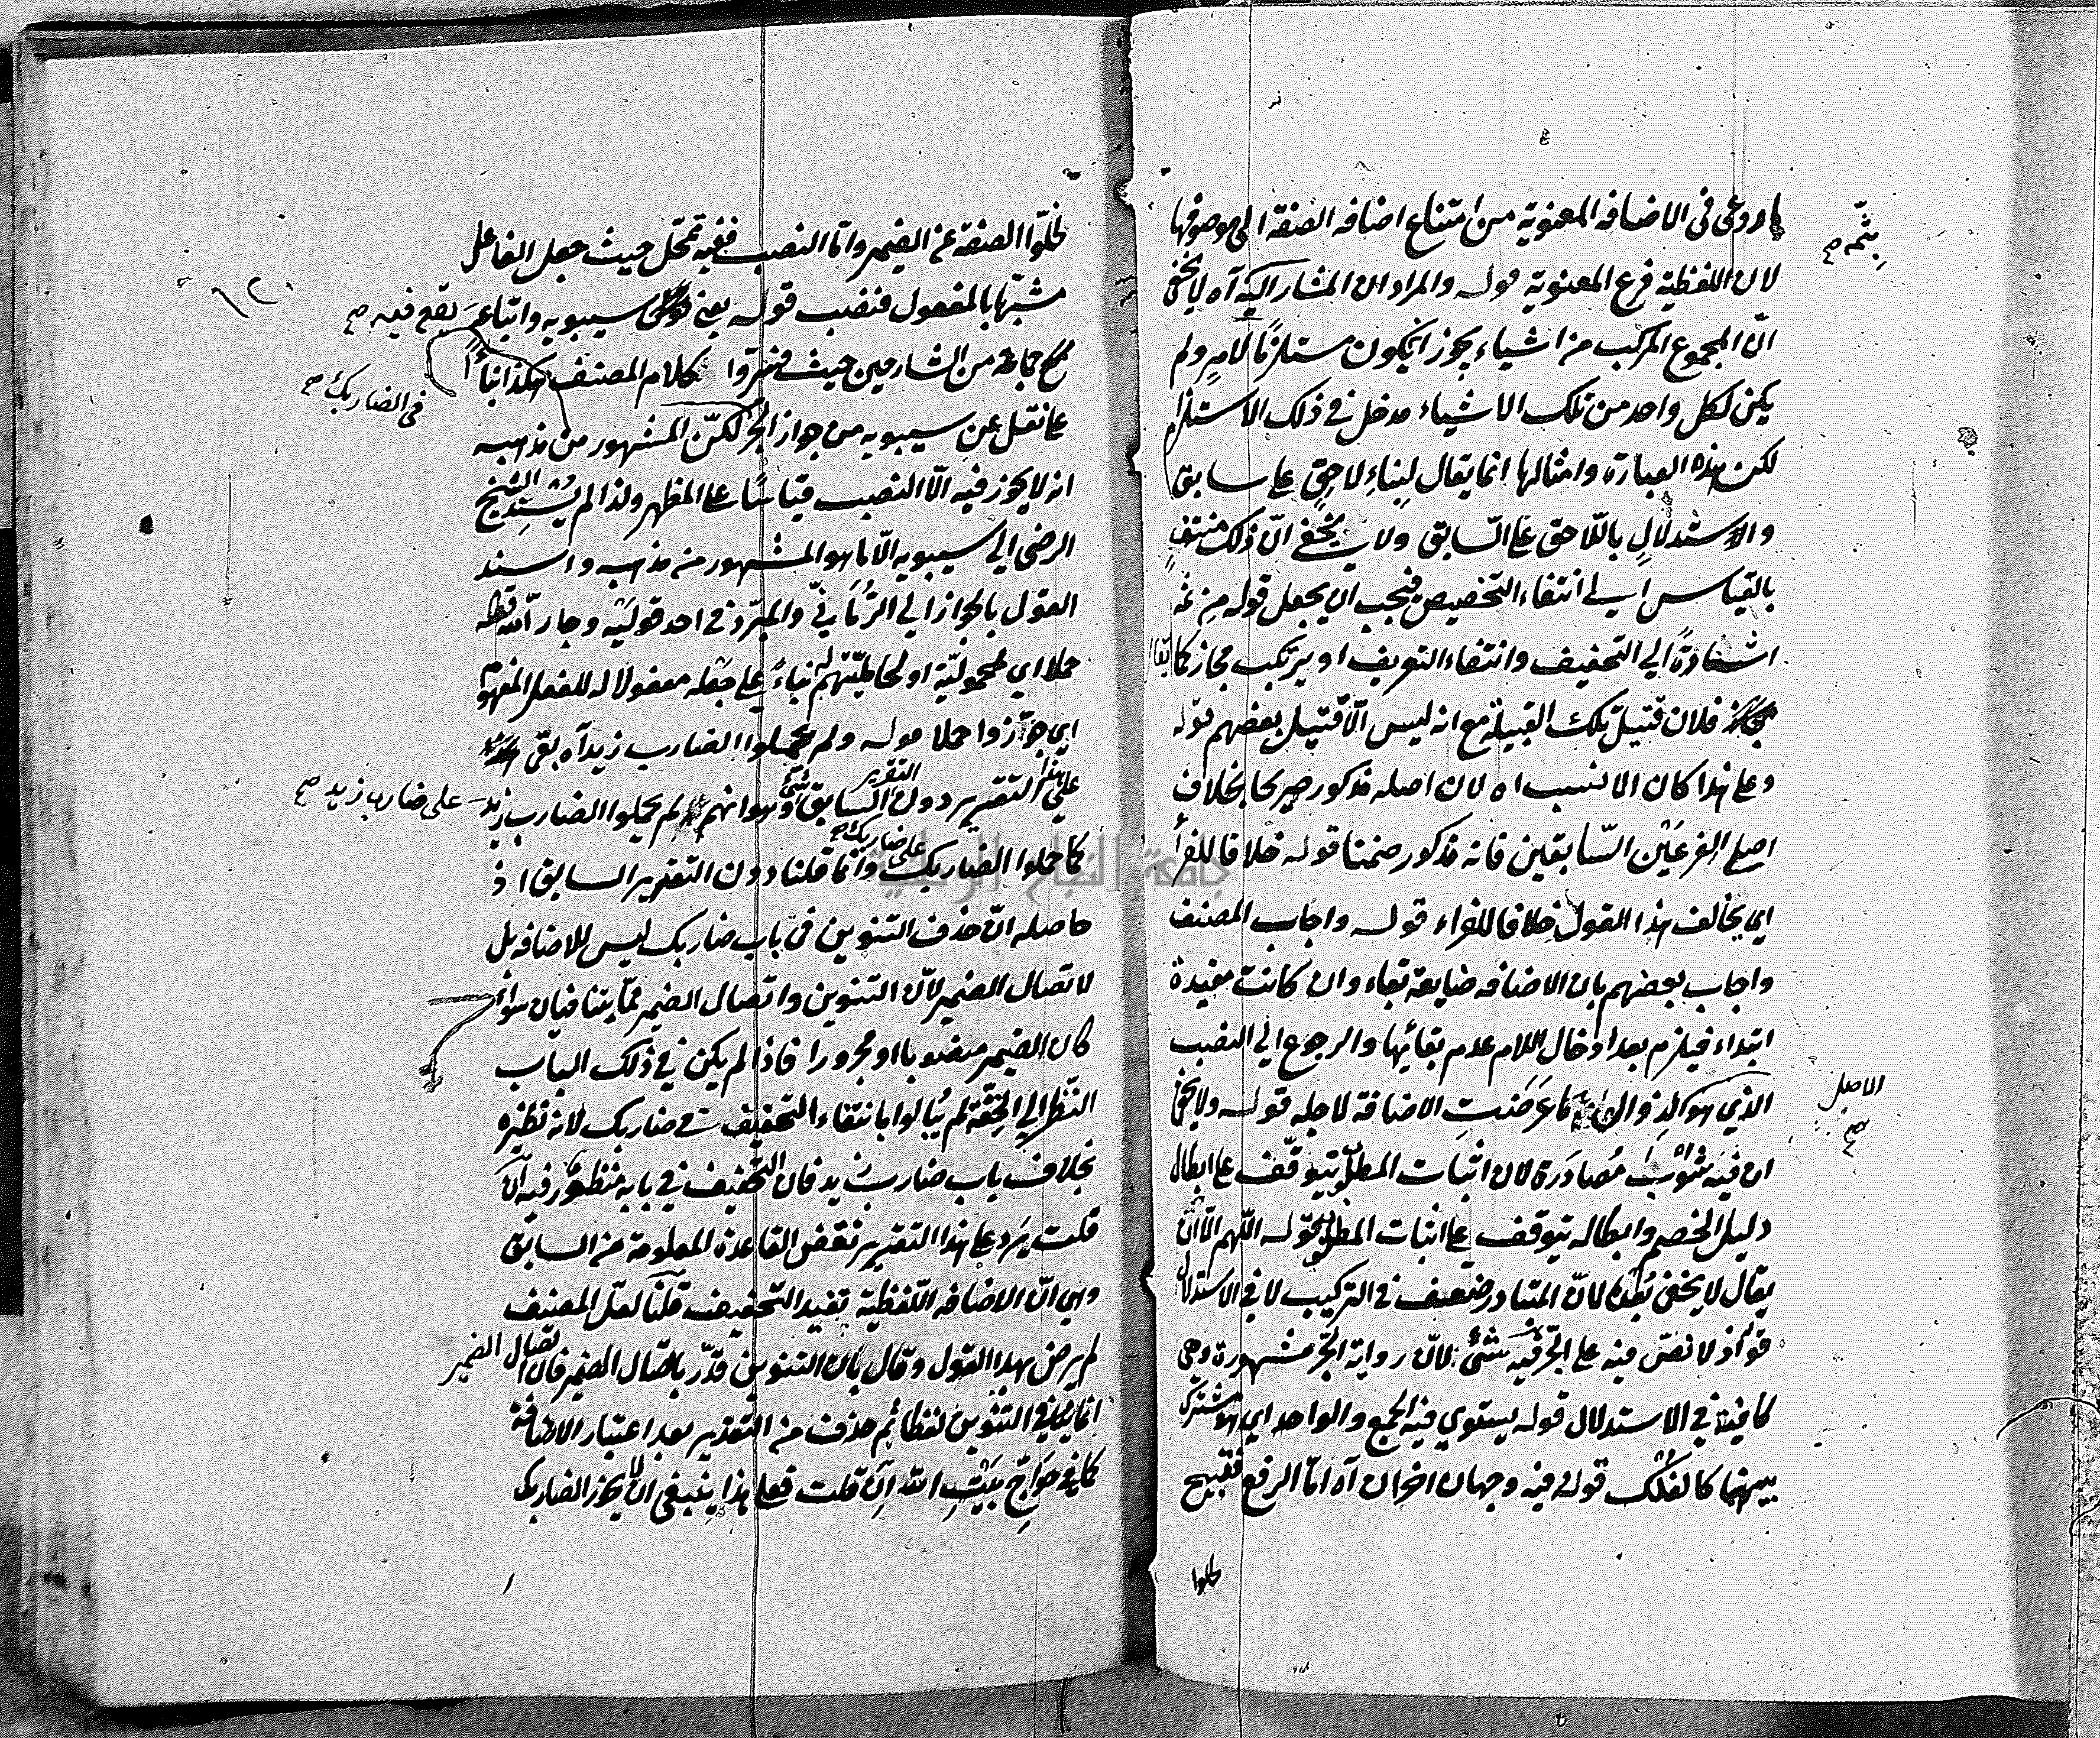 روعى فى الاضافه المعنوية من امتناع اضافه الصفة الى موصوفها
بثمه صح
لان اللفظية فرع المعنوية قوله والمراد ان المشار اليه آه لا يخفى
انّ المجموع المركب من اشياء يجوز ان يكون مستلزمًا لامرٍ ولم
يكن لكل واحد من تلك الاشياء مدخل فى ذلك الاستلزام
لكن هذه العبارة وامثالها انما يقال لبناءِ لاحقٍ على سابق
والاستدلالِ باللاحق على السّابق ولا يخفى انّ ذلك منتفٍ
بالقياس الى انتفاء التخصيص فيجب ان يجعل قوله من ثمه
اشارةً الى التخفيف وانتفاء التعريف او يرتكب مجاز كما يقال
فلان قتيل تلك القبيلة مع انه ليس الّا قتيل بعضهم قوله
وعلى هذا كان الانسب اه لان اصله مذكور صريحا بخلاف
اصل الفرعَيْن السّابقين فانه مذكور ضمنا قوله خلافا للفرأ
اى يخالف هذا القول خلافا للفراء قوله واجاب المصنف
واجاب بعضهم بان الاضافه ضايعة بقاء وان كانت مفيدة
ابتداء فيلزم بعد ادخال اللام عدم بقائها والرجوع الى النصب
الذي هو الاصل
الاصل صح
لما عَرَضَت الاضافة لاجله قوله ولا يخفى
ان فيه شَوْبَ مُصادَرة لان اثبات المطلوب يتوقّف على ابطال
دليل الخصم وابطاله يتوقف على اثبات المطلوب قوله اللّهم الّا ان
يقال لا يخفى بُعْده لانّ المتبادر ضعف فى التركيب لا فى الاستدلال
قوله اذ لا نصّ فيه على الجرّ فيه شئ لانّ رواية الجرّ مشهورة وهى
كافية فى الاستدلال قوله يستوي فيه الجمع والواحد اى هو مشترك
بينهما كالفُلْك قوله فيه وجهان اخران آه امّا الرفع فقبيح
خلوا
خلوّا الصفة عن الضمير وامّا النصب ففيه تمحّل حيث جعل الفاعل
مشبّها بالمفعول فنصب قوله يعنى سيبويه واتباعه
يقع فيه صح
مع جماعة من الشارحين حيث فسّروا كلام المصنف هكذا بناءً
فى الضاربك صح
على نقل عن سيبويه من جواز الجرّ لكنّ المشهور من مذهبه
انه لا يجوز فيه الّا النصب قياسًا على المظهر ولذا لم يُسْنِد الشيخ
الرضى الى سيبويه الّا ما هو المشهور من مذهبه واسند
القول بالجواز الى الرُمّانىّ والمبرّد فى احد قوليْه وجار اللّه قوله
حملا اى لمحموليّة او لحامليّتهم بناءً على جَعْله مفعولا له للفعل المفهوم
اى جوّزوا حملا قوله ولم يحملوا الضارب زيد آه بقى
على هذا التقرير دون التقرير السابق شئ وهو انهم لم يحملوا الضارب زيد
على ضارب زيد صح
كما حملوا الضاربك على ضاربك وانّما قلنا دون التقرير السابق اذ
حاصله انّ حذف التنوين فى باب ضاربك ليس للاضافه بل
لاتصال الضمير لانّ التنوين واتصال الضمير ممّا يتنافيان سواءً
كان الضمير منصوبا او مجرورا فاذا لم يكن فى ذلك الباب
النظر الى الخِفّة لم يُبالوا بانتفاء التخفيف فى ضاربك لانه نظيره
بخلاف باب ضارب زيد فان التخفيف فى بابه منظورٌ فيه ان
قلت يَرِد على هذا التقرير نقض القاعدة المعلومة من السابق
وهى انّ الاضافه اللّفظية تفيد التخفيف قلنا لعلّ المصنف
لم يرض بهذا القول وقال بان التنوين قدّر باتّصال الضمير فان اتصال الضمير
انما ينافى التنوين لفظا ثم حذف من التقدير بعد اعتبار الاضافة
كما فى حَواجّ بَيْتِ اللّه اِن قلت فعلى هذا ينبغى ان لا يجوز الضاربك